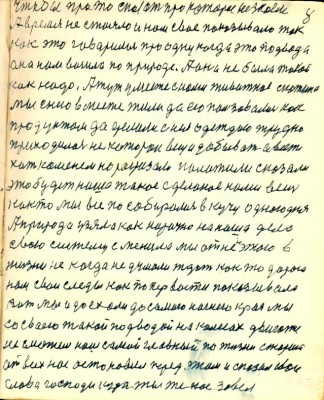 чтобы про то сказат про которое не знаем 8
А время не стаяло и нам свое показывало так
как это гаварится про одну когда это подвода
она нам вышла по природе. А она не была такой
как надо. А тут уместе с ними животное скотина
мы с него вместе жили да его пользавали как
продуктом да делали с ней одежду трудно
приходилося некотори вещи добывать а вот
хоть каменем но
это будет наша такое сделаное нами вещ
как то мы все по собиралися в кучу одного дня
А природа узяла как нарочно напаша дела
свою систему сменила мы от нее этого в
жизни не когда не думали ждат как то дорого
нам свои следы как то первости показывала
Вот мы и доехоли до самого нашего края мы
со своего такой подводой на колесах двигатс
не сможем нам самой главный по жизни старшей
от всех нас остоновил перед нами и сказал свои
слова господи куда ты же нас завел